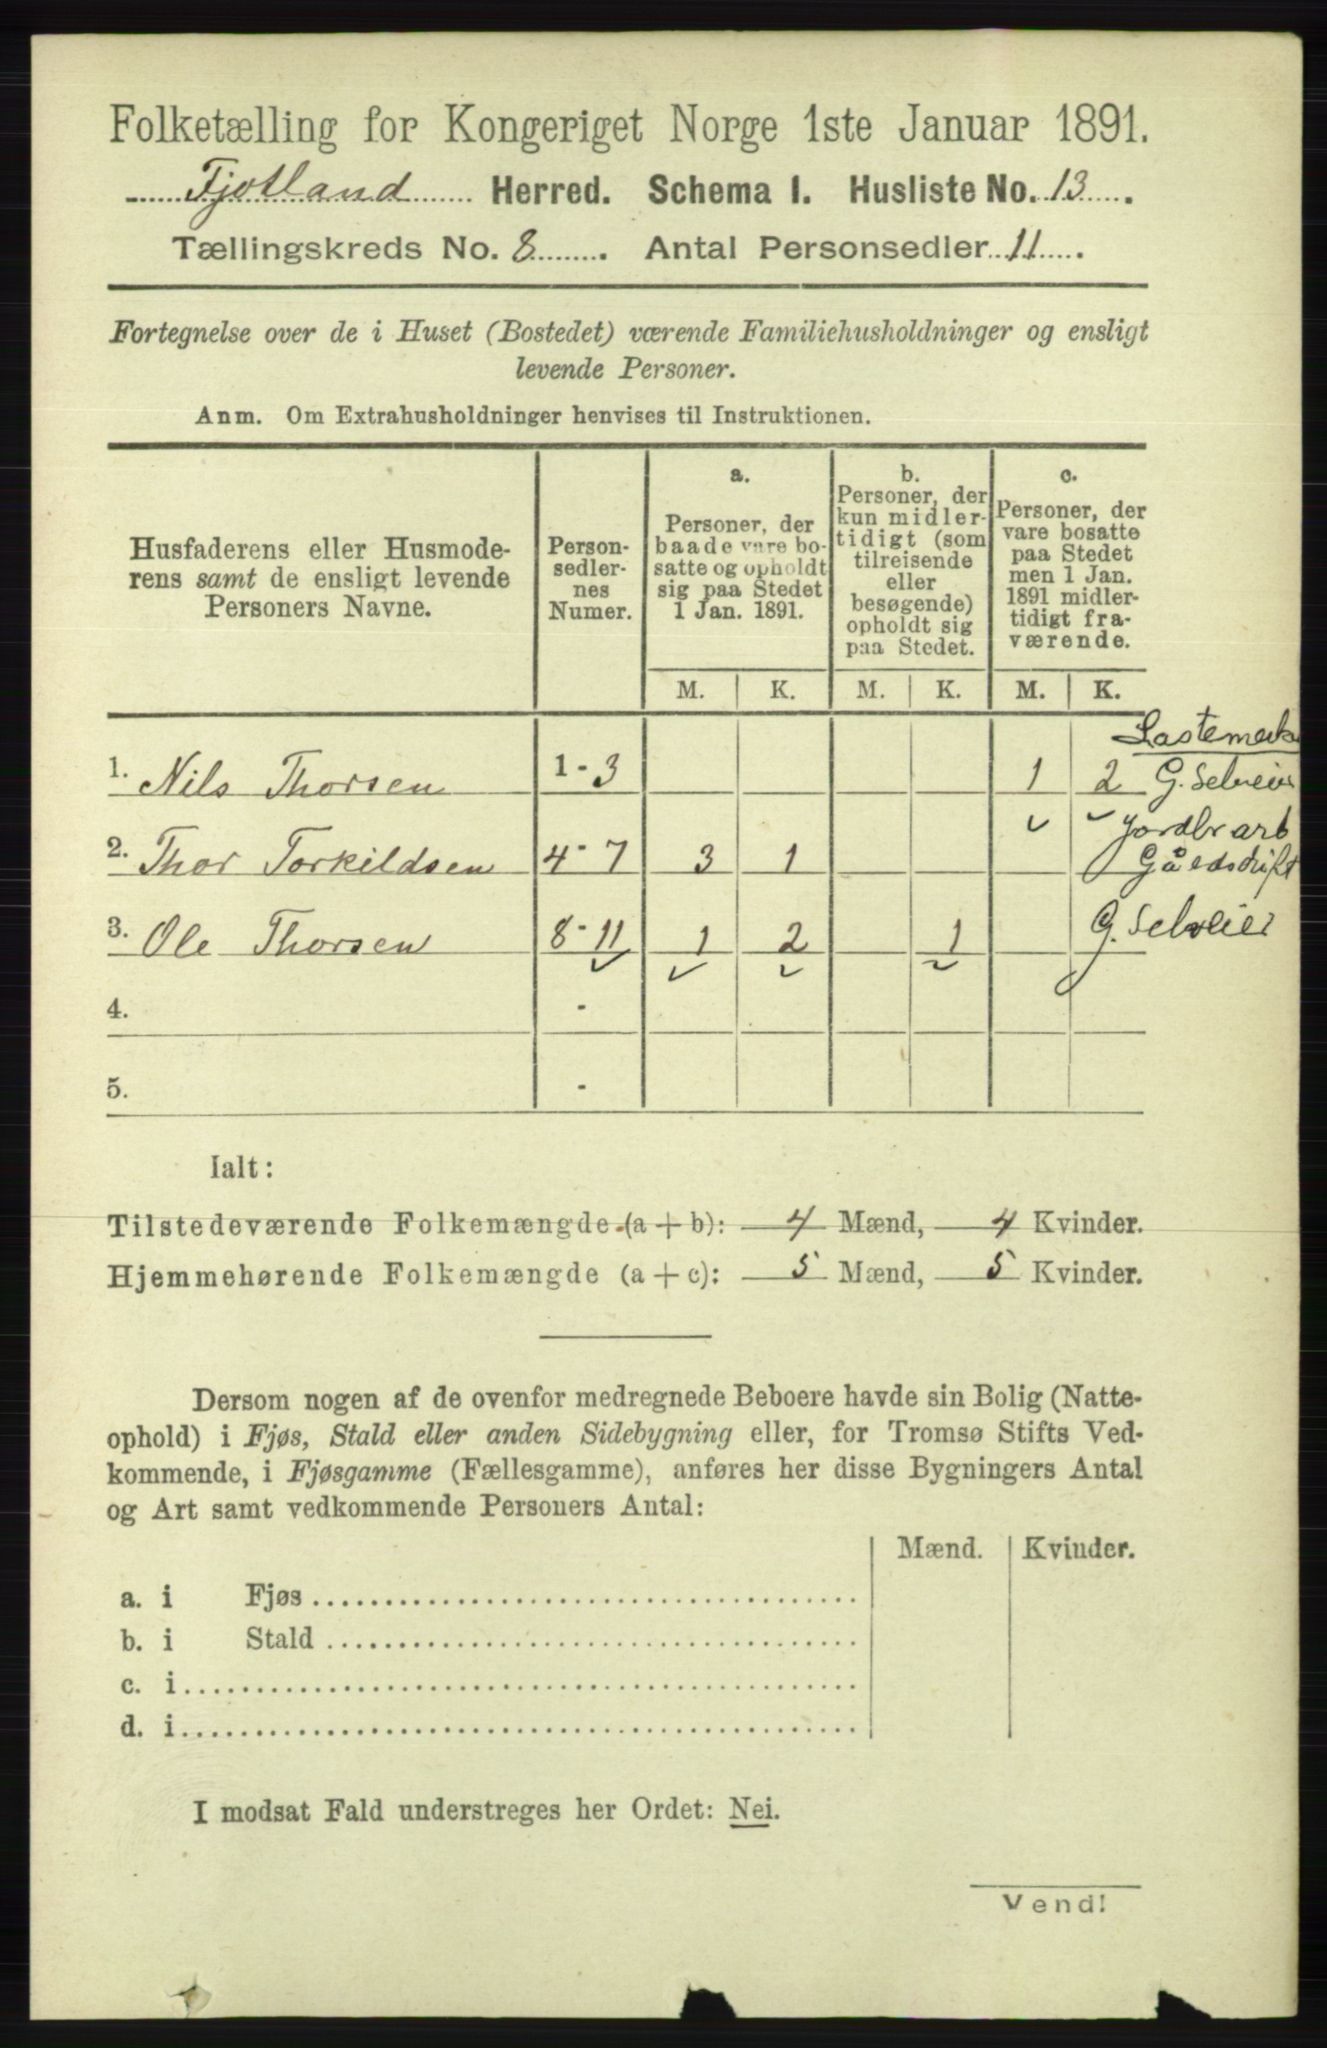 Folketælling for Kongeriget Norge 1ste Januar 1891.
Fjotland Herred. Schema I. Husliste No. 13.
Tællingskreds No. 8. Antal Personsedler 11.
Fortegnelse over de i Huset (Bostedet) værende Familiehusholdninger og ensligt
levende Personer.
Anm. Om Extrahusholdninger henvises til Instruktionen.
Husfaderens eller Husmode-
rens samt de ensligt levende
Personers Navne.
Person-
sedler-
nes
Numer.
a.
Personer, der
baade vare bo-
satte og opholdt
sig paa Stedet
1 Jan. 1891.
b.
Personer, der
kun midler-
tidigt (som
tilreisende
eller
besøgende)
opholdt sig
paa Stedet.
c.
Personer, der
vare bosatte
paa Stedet
men 1 Jan.
1891 midler-
tidigt fra-
værende.
M. K. M. K. M. K.
1. Nils Thorsen 1-3 1 2 G. Selveier
2. Thor Torkildsen 4-7 3 1
Jordbr arb
Gårdsdrift
3. Ole Thorsen 8-11 1 2 1 G. Selveier
4. -
5. -
Ialt:
Tilstedeværende Folkemængde (a + b): 4 Mænd, 4 Kvinder.
Hjemmehørende Folkemængde (a + c): 5 Mænd, 5 Kvinder.
Dersom nogen af de ovenfor medregnede Beboere havde sin Bolig (Natte-
ophold) i Fjøs, Stald eller anden Sidebygning eller, for Tromsø Stifts Ved-
kommende, i Fjøsgamme (Fællesgamme), anføres her disse Bygningers Antal
og Art samt vedkommende Personers Antal:
Mænd. Kvinder.
a. i Fjøs
b. i Stald
c. i
d. i
I modsat Fald understreges her Ordet: Nei.
Vend!